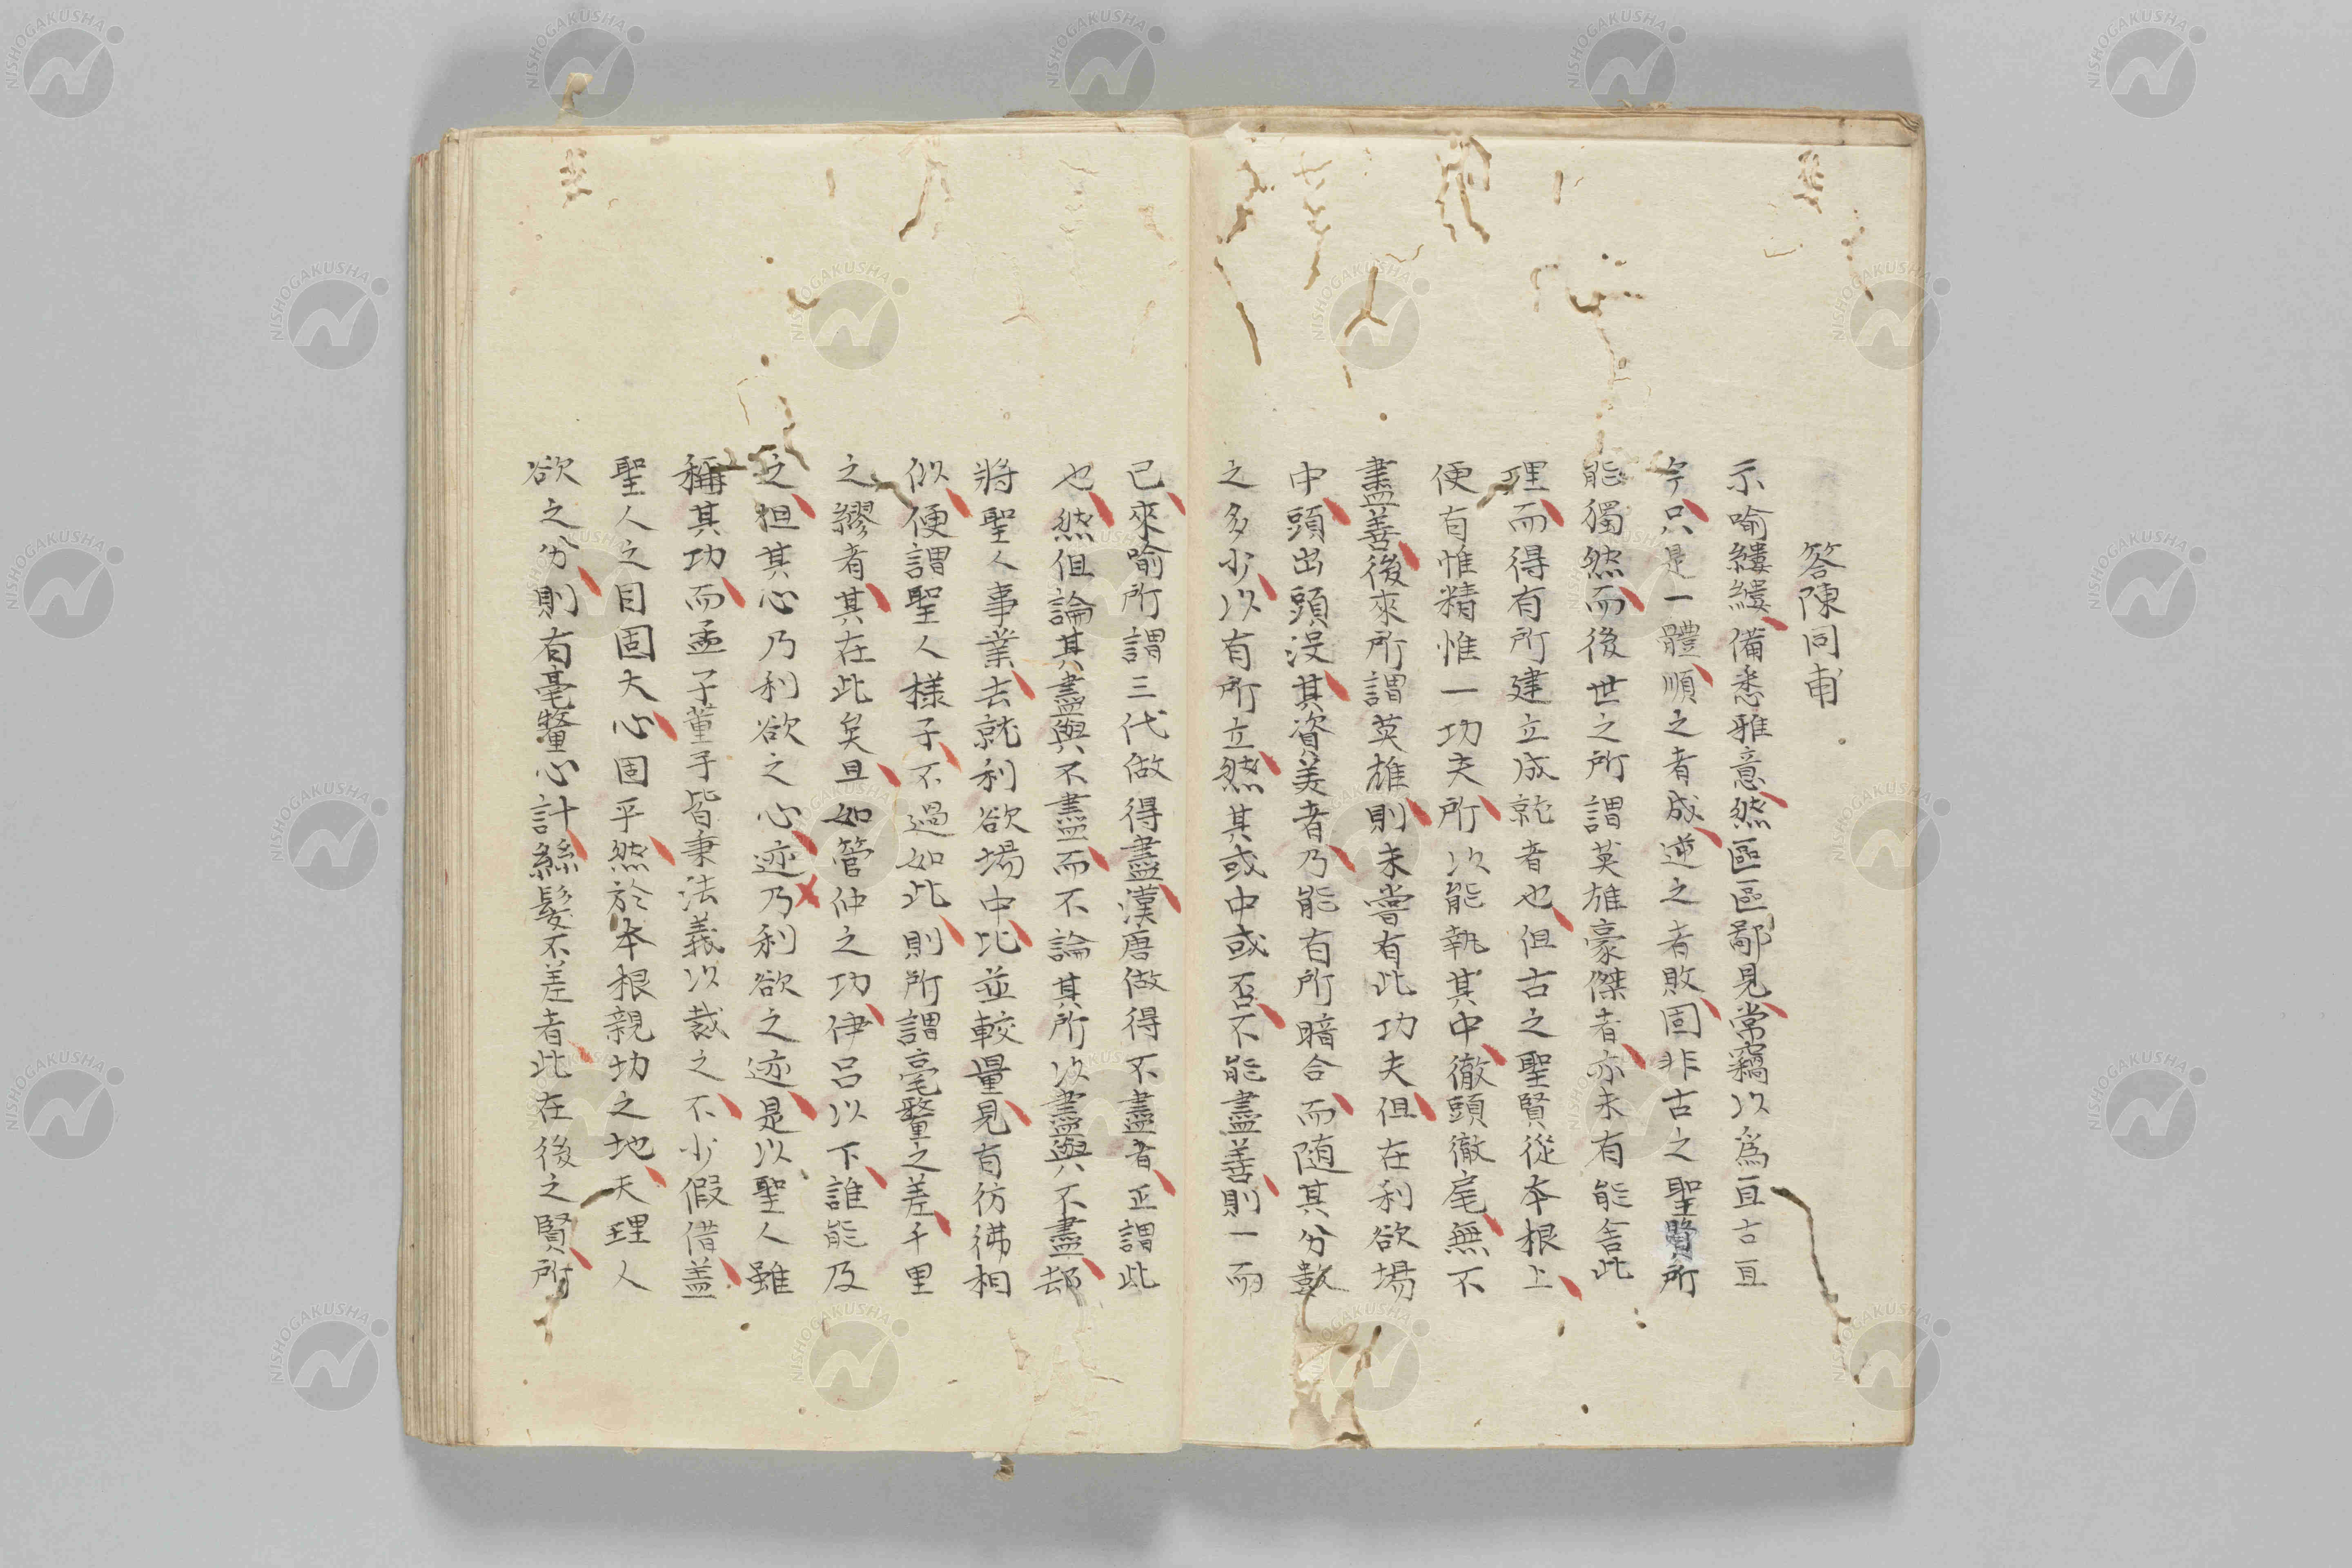 答陳同甫
示喻縷縷備悉雅意然區區鄙見常竊以爲亘古亘
今只是一體順之者成逆之者敗固非古之聖賢所
能獨然而後世之所謂英雄豪傑者亦未有能舍此
理而得有所建立成就者也但古之聖賢從本根上
便有惟精惟一功夫所以能執其中徹頭徹尾無不
盡善後來所謂英雄則未嘗有此功夫但在利欲場
中頭出頭沒其資美者乃能有所暗合而随其分數
之多少以有所立然其或中或否不能盡善則一而
已來喻所謂三代做得盡漢唐做得不盡者正謂此
也然但論其盡與不盡而不論其所以盡與不盡却
將聖人事業去就利欲場中比並較量見有彷彿相
似便謂聖人樣子不過如此則所謂毫釐之差千里
之繆者其在此矣且如管仲之功伊吕以下誰能及
之但其心乃利欲之心迹乃利欲之迹是以聖人雖
稱其功而孟子董子皆秉法義以裁之不少假借盖
聖人之目固大心固平然於本根親切之地天理人
欲之分則有毫釐必計絲髮不差者此在後之賢所
NISHOGAKUSHA